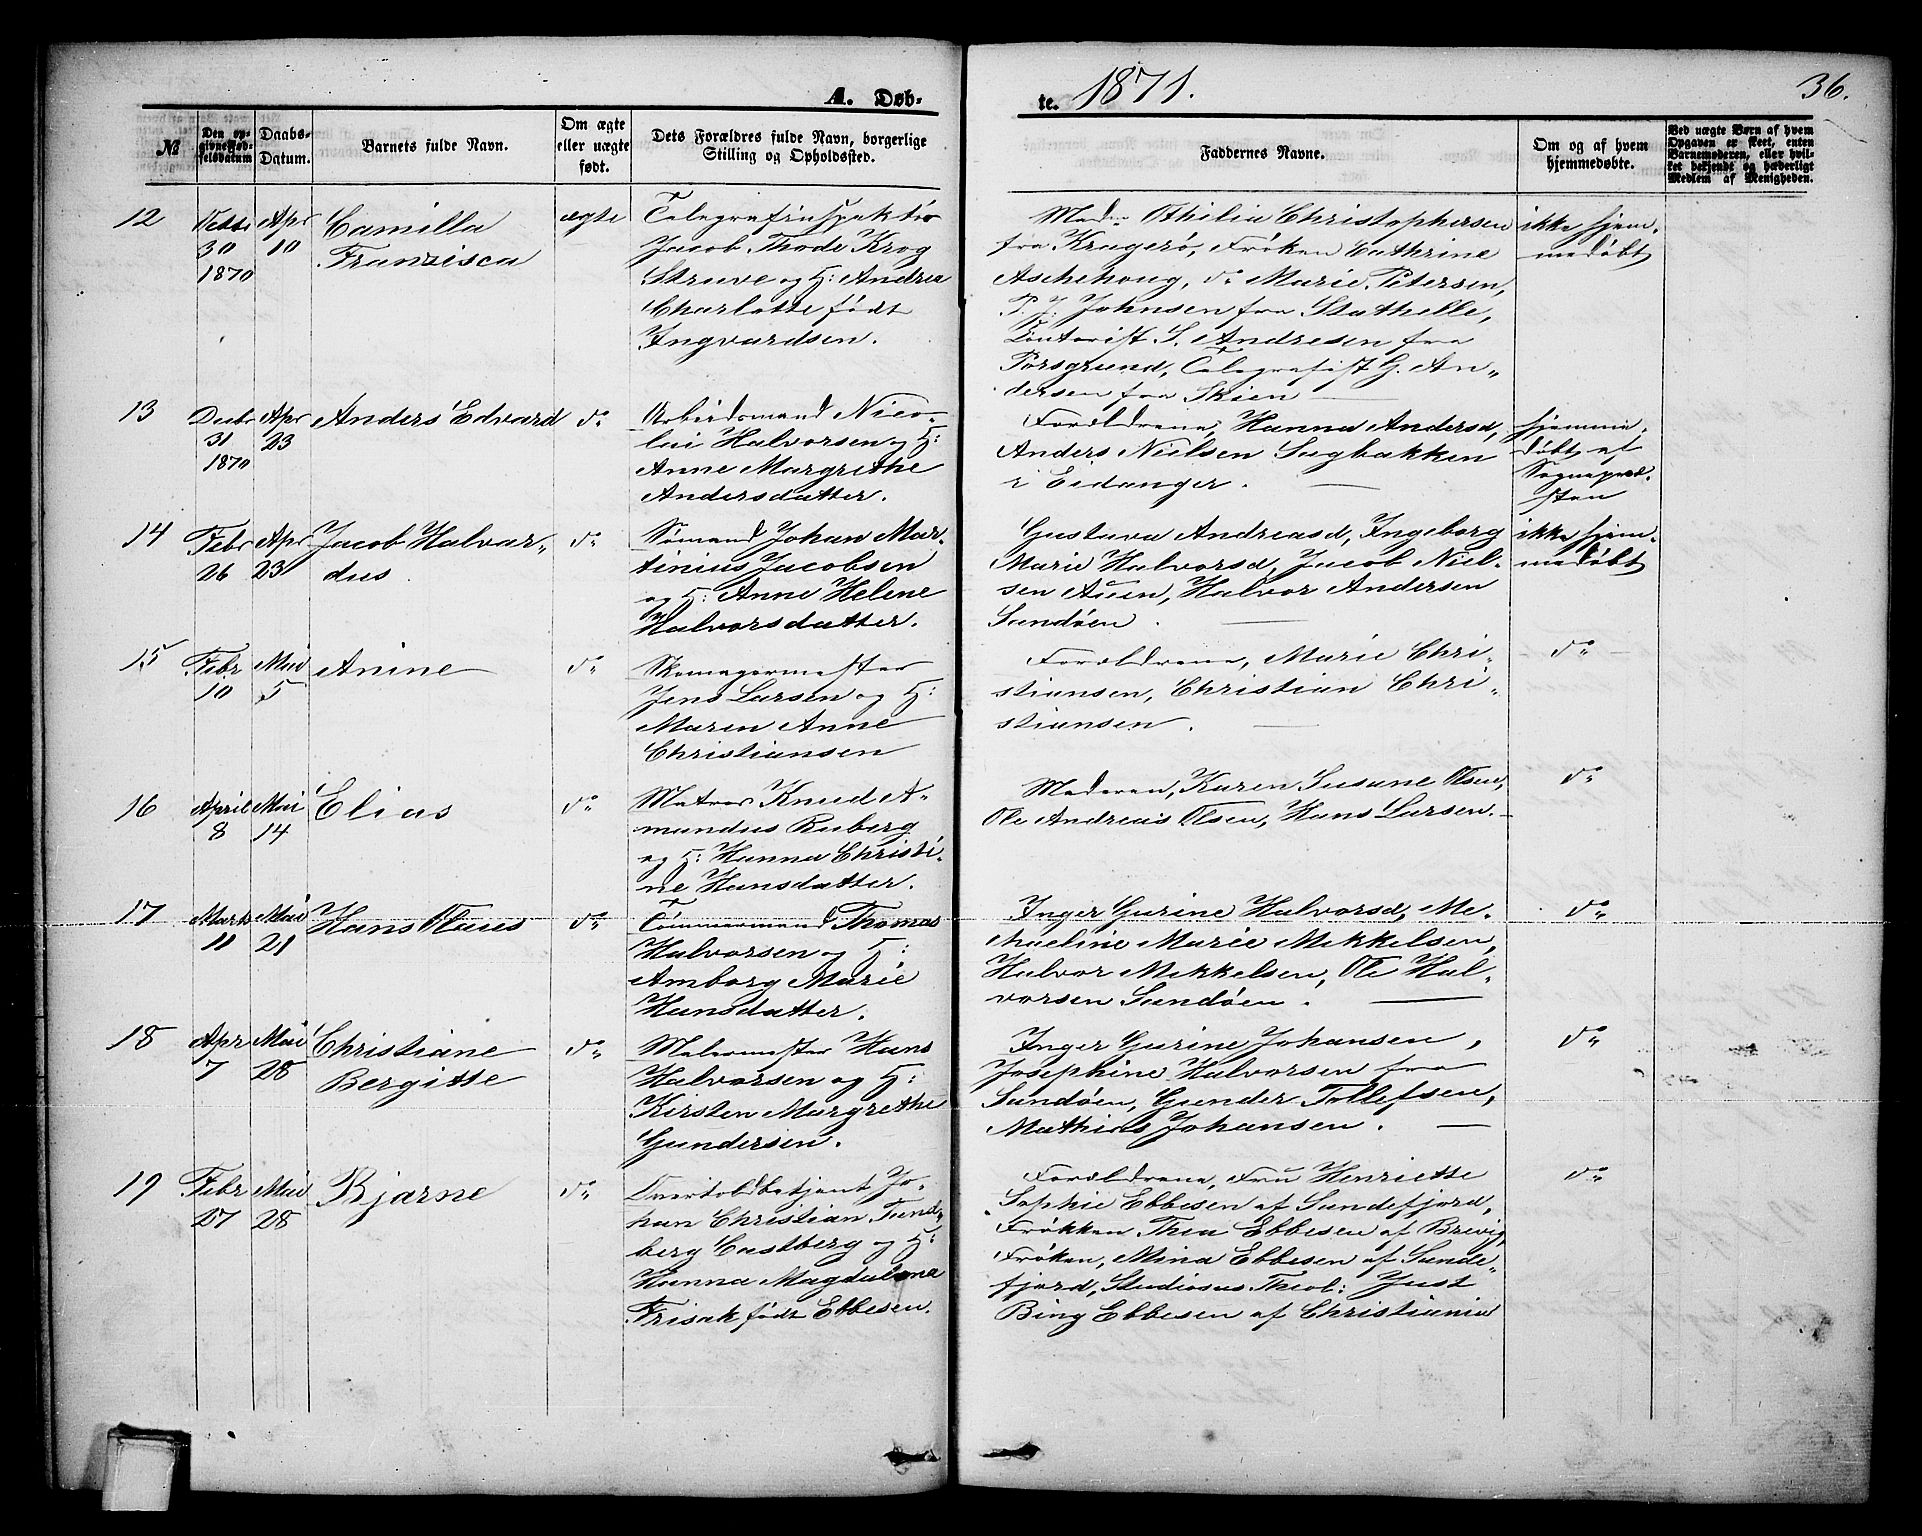 A. Døb-
te. 1871.
36.
№
Den op-
givne Fød-
selsdatum
Daabs-
Datum.
Barnets fulde Navn.
Om ægte
eller uægte
født.
Dets Forældres fulde Navn, borgerlige
Stilling og Opholdssted.
Faddernes Navne.
Om og af hvem
hjemmedøbte.
Ved uægte Børn af hvem
Opgaven er skeet, enten
Barnemoderen, eller hvil-
ket bekjendt og hæderligt
Medlem af Menigheden.
12
30
1870
Apr
10
Camilla
Franzisca
ægte
Telegrafinspektør
Jacob Thode Krog
Struve og H: Andrea
Charlotte født
Ingvardsen.
Othilia Christophersen
fra Kragerø, Frøken Cathrine
Aschehoug, do Marie Petersen,
P. J. Johnsen fra Stathelle,
Contorist S. Andresen fra
Porsgrund, Telegrafist G. An-
dersen fra Skien
ikke hjem-
medøbt
13
Decbr
31
1870
Apr
23
Anders Edvard
do
Arbeidsmand Nico-
lai Halvorsen og H:
Anne Margrethe
Andersdatter.
Forældrene, Hanna Andersd,
Anders Nielsen Sagbakken
i Eidanger.
hjemme-
døbt af
Sognepræ-
sten
14
Febr
26
Apr
23
Jacob Halvar-
dus.
do
Sømand Johan Mar-
tinius Jacobsen
og H: Anne Helene
Halvorsdatter.
Gustava Andreasd, Ingeborg
Marie Halvorsd, Jacob Niel-
sen Auen, Halvor Andersen
Sandøen.
ikke hjem-
medøbt
15
Febr
10
Mai
5
Anine
do
Skomagermester
Jens Larsen og H:
Maren Anne
Christiansen
Forældrene, Marie Chri-
stiansen, Christian Chri-
stiansen.
do
16
April
8
Mai
14
Elias
do
Matros Knud A-
mundus Ruberg
og H: Hanna Christi-
ne Hansdatter.
Moderen, Karen Susane Olsen,
Ole Andreas Olsen, Hans Larsen.
do
17
Marts
11
Mai
21
Hans Olaus
do
Tømmermand Thomas
Halvorsen og H:
Amborg Marie
Hansdatter.
Inger Gurine Halvorsd, Me-
Marie Mikkelsen,
Halvor Mikkelsen, Ole Hal-
vorsen Sandøen.
do
18
Apr
7
Mai
28
Christiane
Bergitte
do
Malermester Hans
Halvorsen og H:
Kirsten Margrethe
Gundersen.
Inger Gurine Johansen,
Josephine Halvorsen fra
Sandøen, Gunder Tollefsen,
Mathias Johansen.
do
19
Febr
27
Mai
28
Bjarne
do
Overtoldbetjent Jo-
han Christian Tand-
berg Castberg og H:
Hanna Magdalena
Frisak født Ebbesen.
Forældrene, Fru Henriette
Sophie Ebbesen af Sandefjord,
Frøkken Thea Ebbesen af Brevig,
Frøken, Mina Ebbesen af Sande-
fjord, Studiosus Theol: Just
Bing Ebbesen af Christiania
do